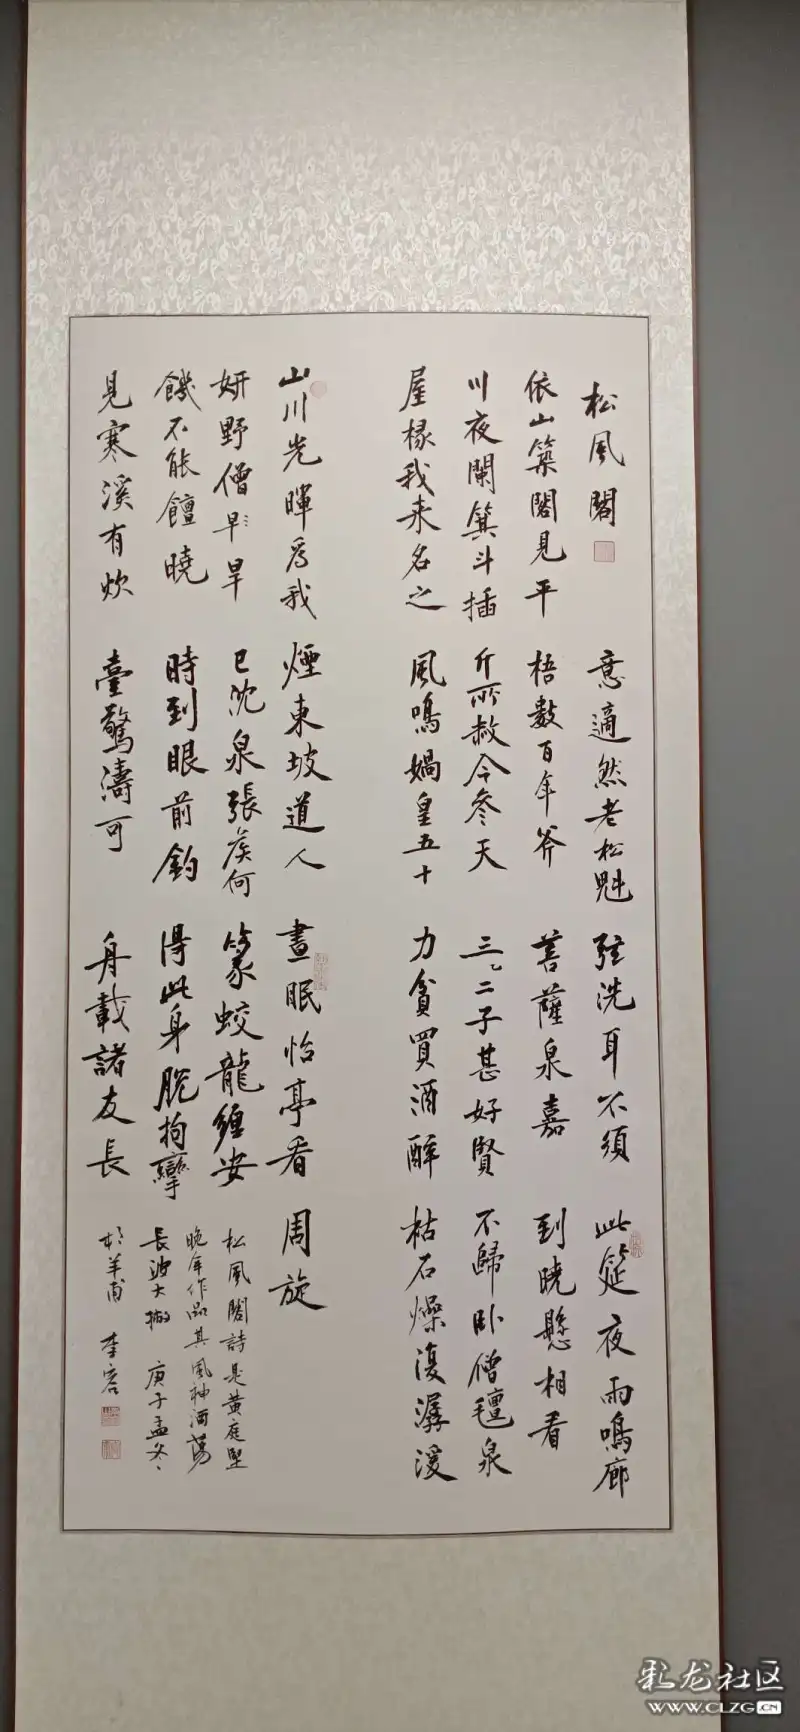 松風閣
依山築閣見平
川夜闌箕斗插
屋椽我来名之
意適然老松魁
梧數百年斧
斤所赦今参天
風鳴媧皇五十
弦洗耳不須
菩薩泉嘉
三二子甚好賢
力貧買酒醉
此筵夜雨鳴廊
到曉懸相看
不歸卧僧氊泉
枯石燥復潺湲
山川光暉爲我
妍野僧早旱
饑不能饘曉
見寒溪有炊
煙東坡道人
已沈泉張矦何
時到眼前釣
臺驚濤可
晝眠怡亭看
篆蛟龍纏安
得此身脫拘攣
舟載諸友長
周旋
松風閣詩是黄庭堅
晚年作品其風神洒蕩
長波大撇 庚子孟冬
彩龙社区
WWW.CLZG.CN